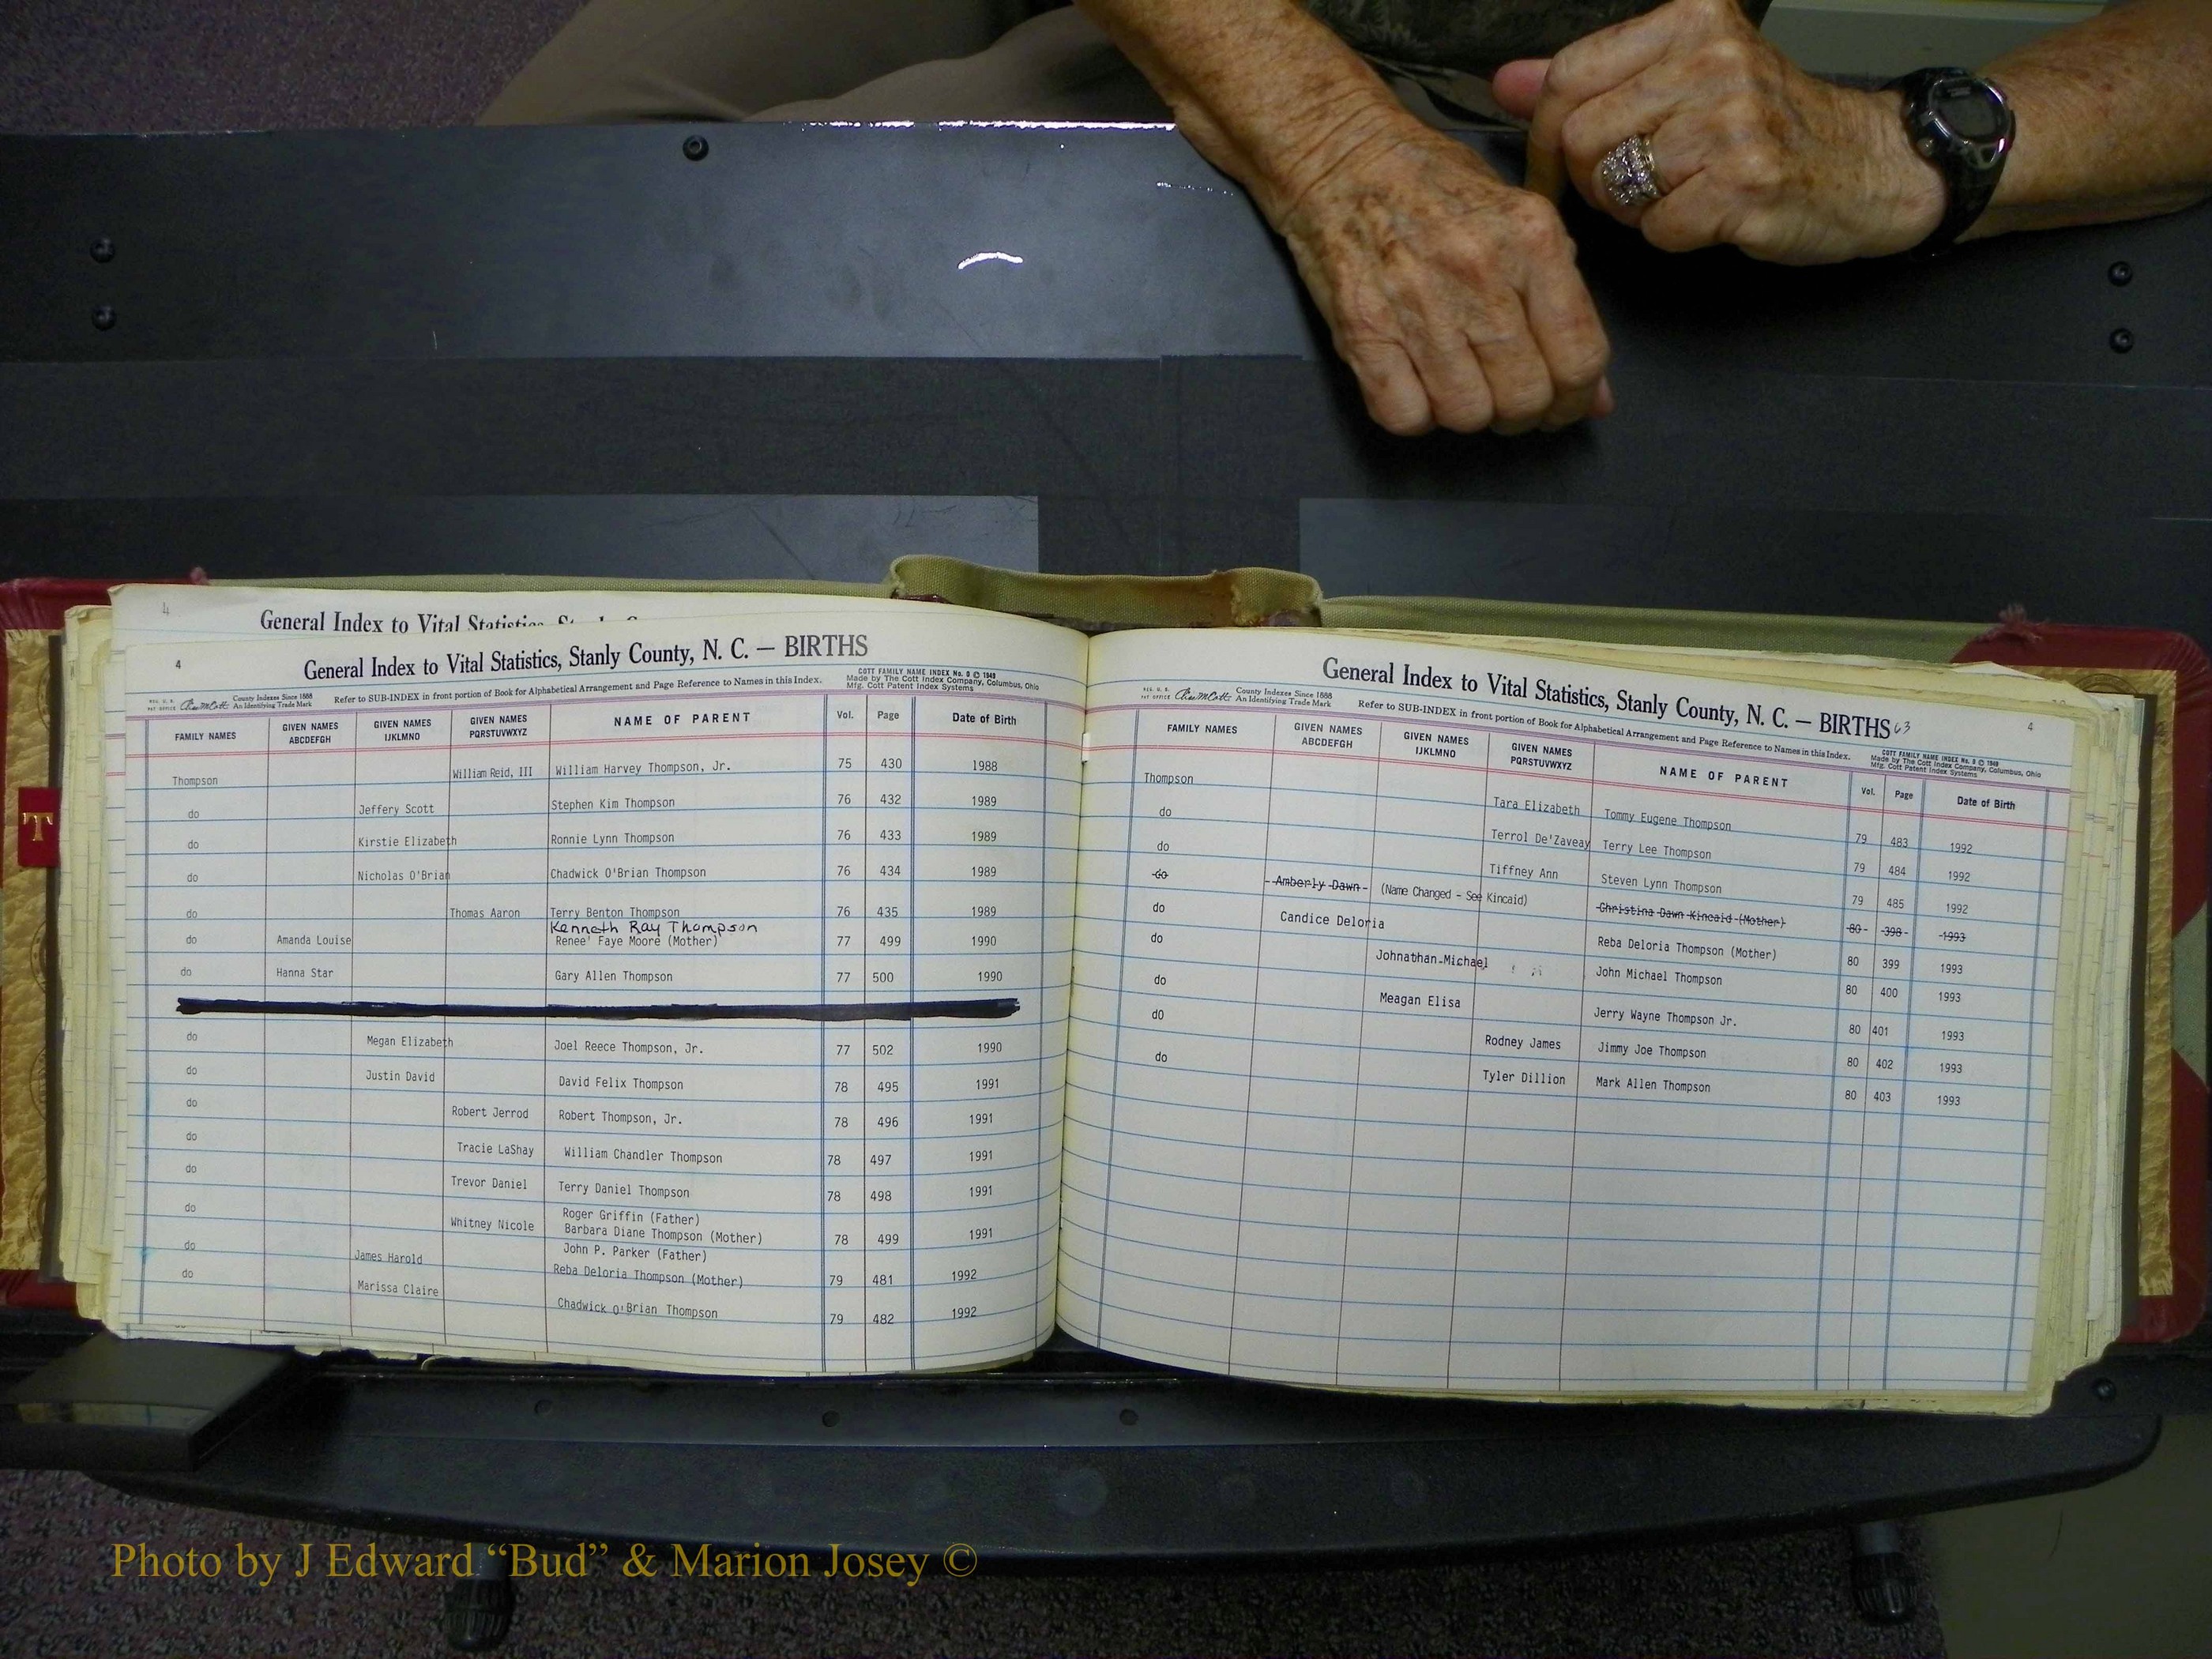 4
General Index to Vital Statistics, Stanly Co
4
General Index to Vital Statistics, Stanly County, N. C. — BIRTHS
County Indexes Since 1888
An Identifying Trade Mark
Refer to SUB-INDEX in front portion of Book for Alphabetical Arrangement and Page Reference to Names in this Index.
COTT FAMILY NAME INDEX No. 9 © 1949
Made by The Cott Index Company, Columbus, Ohio
Mfg. Cott Patent Index Systems
FAMILY NAMES GIVEN NAMES ABCDEFGH GIVEN NAMES IJKLMNO GIVEN NAMES PQRSTUVWXYZ NAME OF PARENT Vol. Page Date of Birth
Thompson William Reid, III William Harvey Thompson, Jr. 75 430 1988
do Jeffery Scott Stephen Kim Thompson 76 432 1989
do Kirstie Elizabeth Ronnie Lynn Thompson 76 433 1989
do Nicholas O'Brian Chadwick O'Brian Thompson 76 434 1989
do Thomas Aaron Terry Benton Thompson 76 435 1989
Kenneth Ray Thompson
do Amanda Louise Renee' Faye Moore (Mother) 77 499 1990
do Hanna Star Gary Allen Thompson 77 500 1990
do Megan Elizabeth Joel Reece Thompson, Jr. 77 502 1990
do Justin David David Felix Thompson 78 495 1991
do Robert Jerrod Robert Thompson, Jr. 78 496 1991
do Tracie LaShay William Chandler Thompson 78 497 1991
do Trevor Daniel Terry Daniel Thompson 78 498 1991
Roger Griffin (Father)
do Whitney Nicole Barbara Diane Thompson (Mother) 78 499 1991
John P. Parker (Father)
do James Harold Reba Deloria Thompson (Mother) 79 481 1992
do Marissa Claire Chadwick O'Brian Thompson 79 482 1992
T
General Index to Vital Statistics, Stanly County, N. C. — BIRTHS 63
4
County Indexes Since 1888
An Identifying Trade Mark
Refer to SUB-INDEX in front portion of Book for Alphabetical Arrangement and Page Reference to Names in this Index.
COTT FAMILY NAME INDEX No. 9 © 1949
Made by The Cott Index Company, Columbus, Ohio
Mfg. Cott Patent Index Systems
FAMILY NAMES GIVEN NAMES ABCDEFGH GIVEN NAMES IJKLMNO GIVEN NAMES PQRSTUVWXYZ NAME OF PARENT Vol. Page Date of Birth
Thompson Tara Elizabeth Tommy Eugene Thompson 79 483 1992
do Terrol De'Zaveay Terry Lee Thompson 79 484 1992
do Tiffney Ann Steven Lynn Thompson 79 485 1992
do Amberly Dawn (Name Changed - See Kincaid) Christina Dawn Kincaid (Mother) 80 398 1993
do Candice Deloria Reba Deloria Thompson (Mother) 80 399 1993
do Johnathan Michael John Michael Thompson 80 400 1993
do Meagan Elisa Jerry Wayne Thompson Jr. 80 401 1993
dO Rodney James Jimmy Joe Thompson 80 402 1993
do Tyler Dillion Mark Allen Thompson 80 403 1993
Photo by J Edward “Bud” & Marion Josey ©